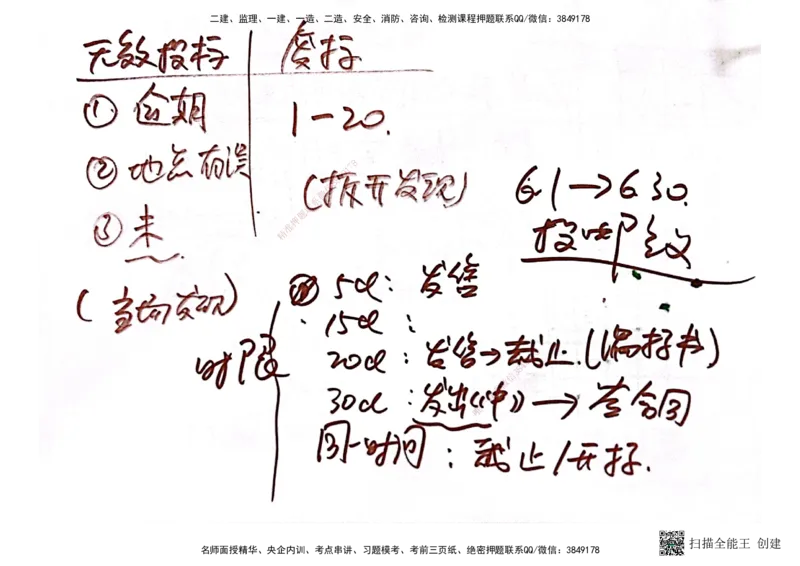 二建、监理、一建、一造、二造、安全、消防、咨询、检测课程押题联系QQ/微信：3849178
无效投标 废标
① 逾期 1-20.
② 地点有误 (拆开发现)
③ 未
(当场发现)
6.1→6.30.
时限
5d：发售
15d：
20d：发售→截止.(编标书)
30d：发出《中》→签合同
同一时间：截止/开标.
扫描全能王 创建
名师面授精华、央企内训、考点串讲、习题模考、考前三页纸、绝密押题联系QQ/微信：3849178